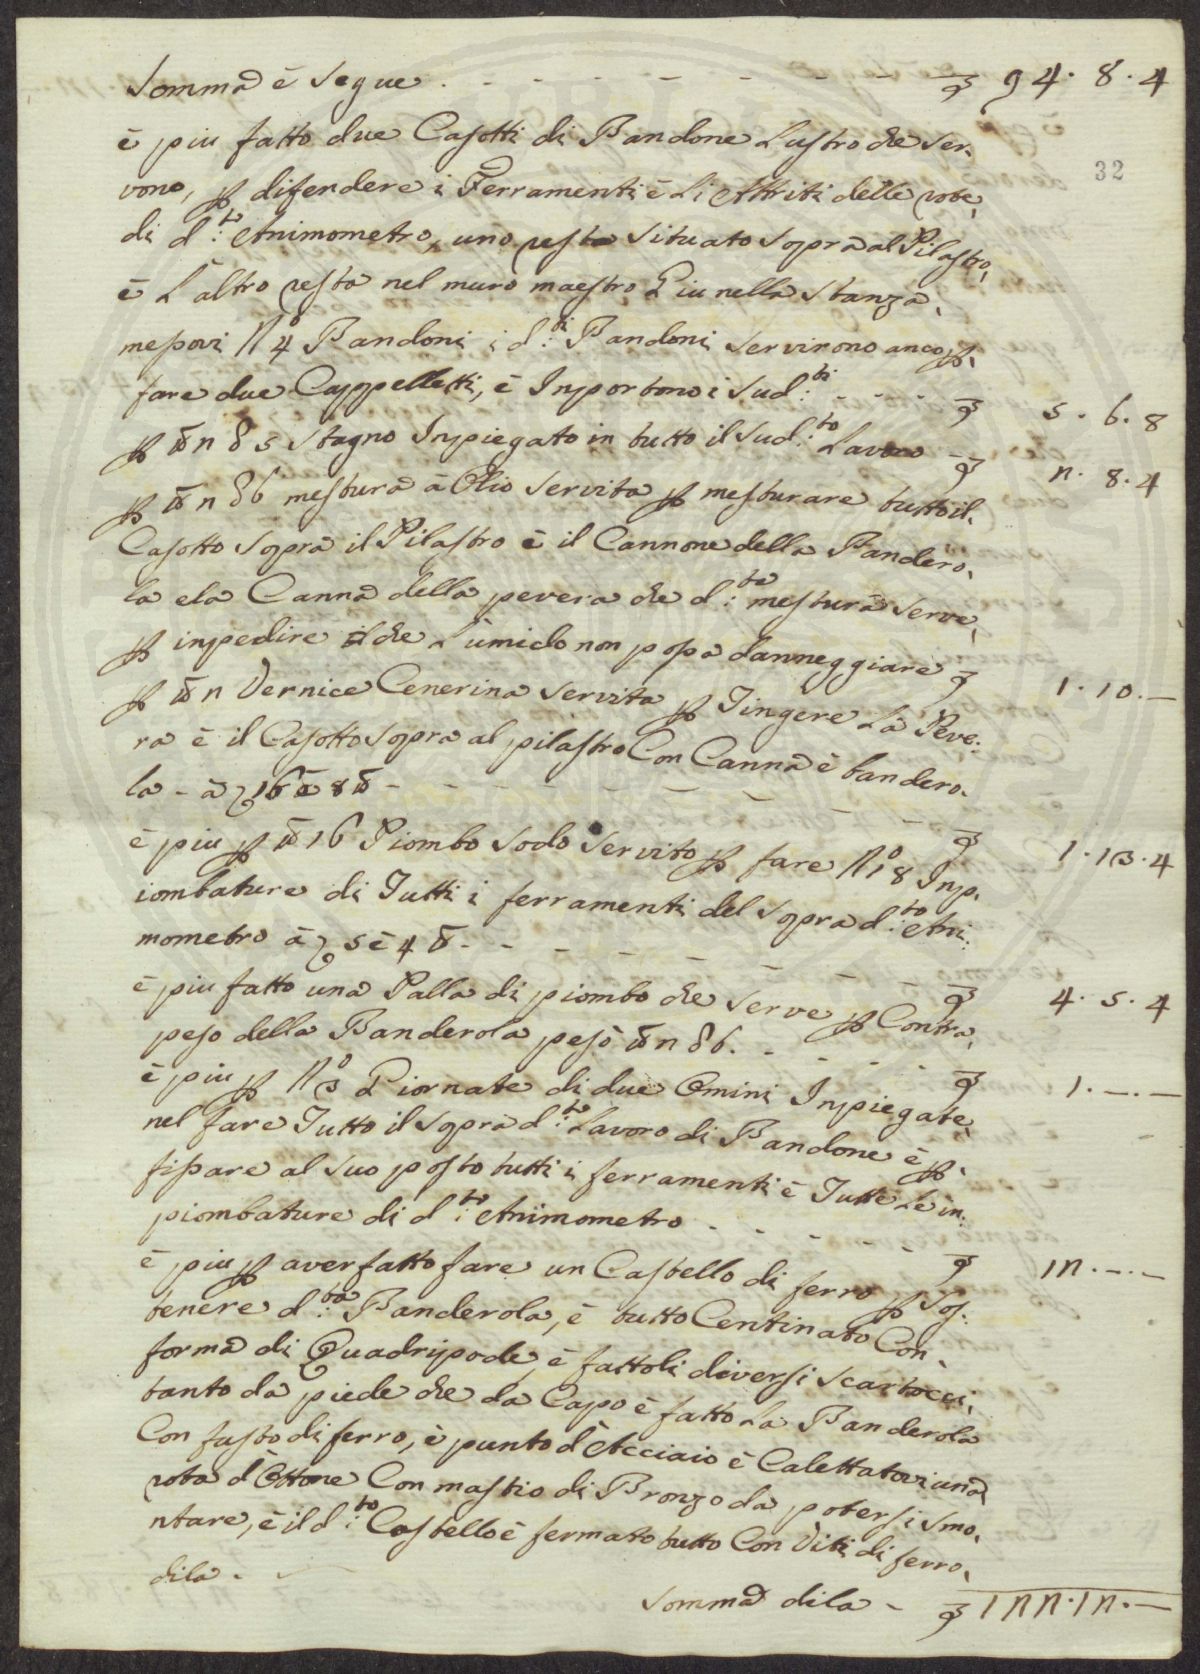 Somma è segue - - - - - - - £ 94. 8. 4
32
è piu fatto due Casotti di Bandone Lustro che ser-
vono, p difendere i Ferramenti è Li Attriti delle rote,
di d:to Animometro, uno resta situato sopra al Pilastro,
è L'altro resta nel muro maestro Giu nella stanza,
messovi No 4 Bandoni, i d:ti Bandoni servirono anco p,
fare due Cappelletti, è Inportono i sud:ti - - - £ 5. 6. 8
p ℔ 2 δ 5 stagno Inpiegato in tutto il sud:to Lavoro - £ 2. 8. 4
p ℔ 2 δ 6 mestura a Olio servita p mesturare tutto il,
Casotto sopra il Pilastro è il Cannone della Bandero,
la e la Canna della pevera che d:ta mestura serve,
p inpedire il che L'umido non possa danneggiare £ 1. 10. —
p ℔ 2 Vernice Cenerina servita p Tingere La Peve:
ra è il Casotto sopra al pilastro Con Canna è bandero-
la - a £ 16 è 8 ℔ - - - - - - - - - £ 1. 13. 4
è piu p ℔ 16 Piombo sodo servito p fare No 18 Inp,
iombature di Tutti i ferramenti del sopra d:to Ani:
mometro à £ 5 è 4 ℔ - - - - - - - £ 4. 5. 4
è piu fatto una Palla di piombo che serve p Contra,
peso della Banderola pesò ℔ 2 δ 6. - - - - £ 1. —. —
è piu p No 3 Giornate di due Omini Inpiegate,
nel fare Tutto il sopra d:to Lavoro di Bandone è p,
fissare al suo posto tutti i ferramenti è Tutte Le in:
piombature di d:to Animometro - - - - - £ 12. —. —
è piu p aver fatto fare un Castello di ferro p Sos:
tenere d:ta Banderola, è tutto Centinato Con,
forma di Quadripode, è fattoli diversi scartocci,
tanto da piede che da Capo è fatto La Banderola
Con fusto di ferro, è punto d'Acciaio è Calettatovi una
rota d'Ottone Con mastio di Bronzo da potersi smo,
ntare, è il d:to Castello è fermato tutto Con Viti di ferro,
dila -
somma dila - £ 122. 12. —